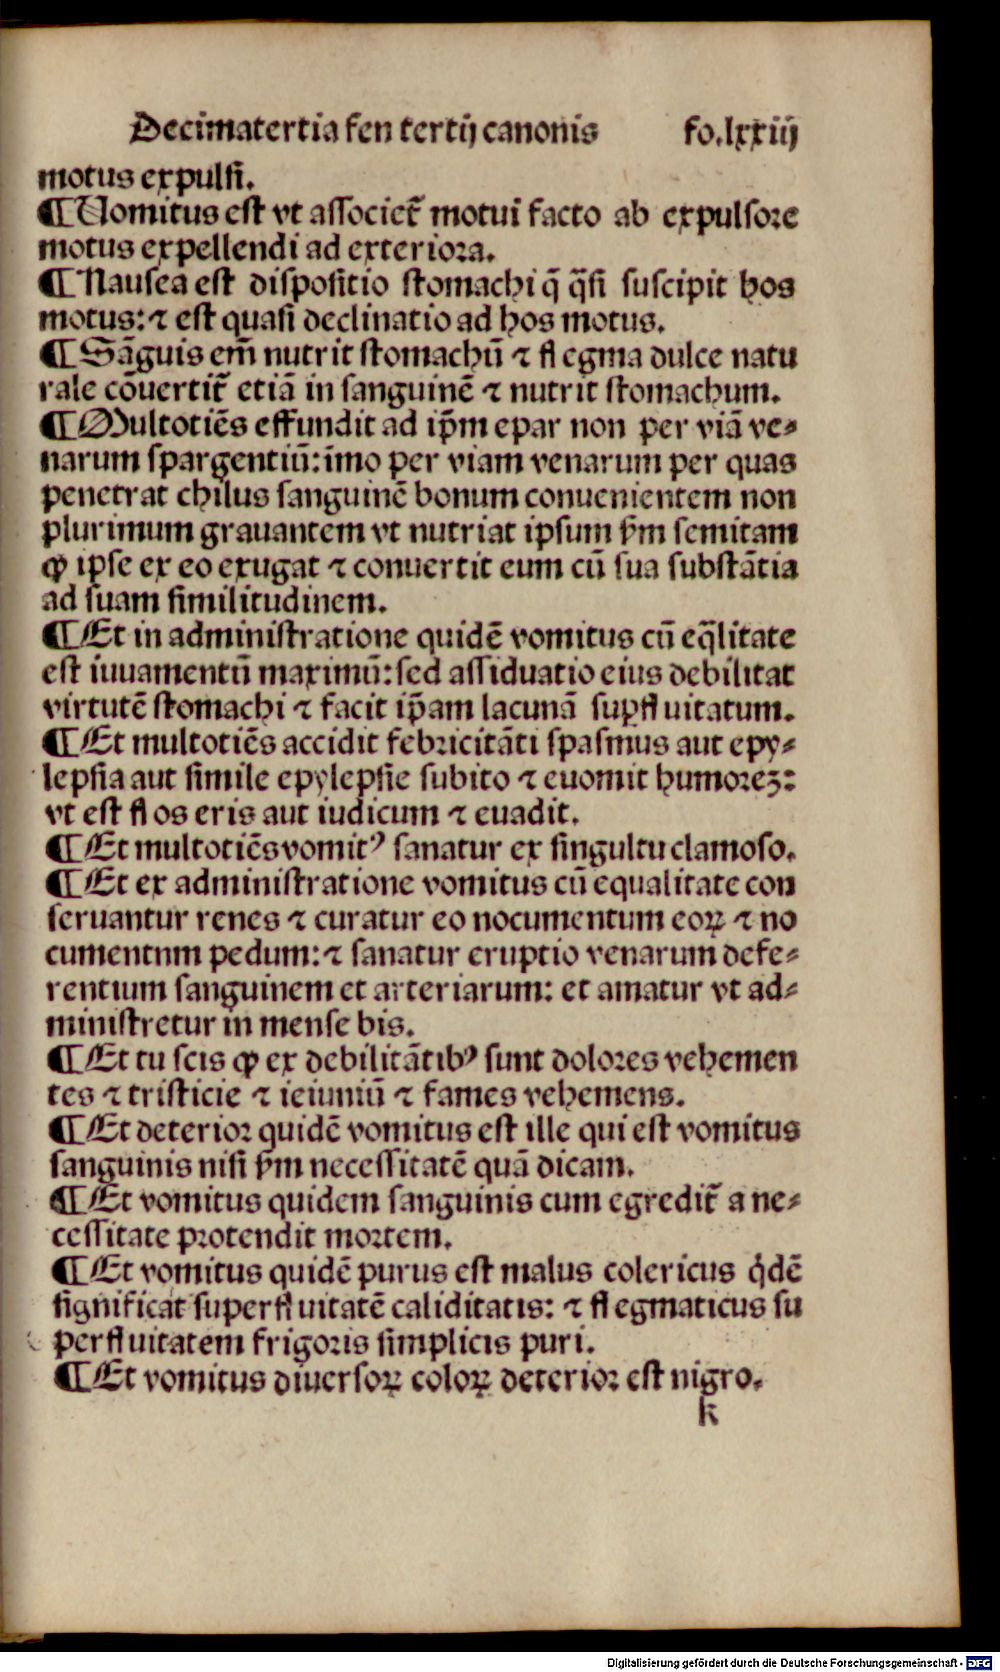 Decimatertia fen tertij canonis fo.lxxiij
motus expulsi.
¶ Vomitus est vt associet᷑ motui facto ab expulsore
motus expellendi ad exteriora.
¶ Nausea est dispositio stomachi q̃ q̃si suscipit hos
motus: ⁊ est quasi declinatio ad hos motus.
¶ Sãguis em̃ nutrit stomachũ ⁊ flegma dulce natu
rale cõuertit᷑ etiã in sanguinẽ ⁊ nutrit stomachum.
¶ Multotiẽs effundit ad ip̃m epar non per viã ve⸗
narum spargentiũ: ĩmo per viam venarum per quas
penetrat chilus sanguinẽ bonum conuenientem non
plurimum grauantem vt nutriat ipsum ẜm semitam
ꝙ ipse ex eo exugat ⁊ conuertit eum cũ sua substãtia
ad suam similitudinem.
¶ Et in administratione quidẽ vomitus cũ eq̃litate
est iuuamentũ maximũ: sed assiduatio eius debilitat
virtutẽ stomachi ⁊ facit ip̃am lacunã suꝑfluitatum.
¶ Et multotiẽs accidit febricitãti spasmus aut epy⸗
lepsia aut simile epylepsie subito ⁊ euomit humorez:
vt est flos eris aut iudicum ⁊ euadit.
¶ Et multotiẽs vomitꝰ sanatur ex singultu clamoso.
¶ Et ex administratione vomitus cũ equalitate con
seruantur renes ⁊ curatur eo nocumentum eoꝝ ⁊ no
cumentnm pedum: ⁊ sanatur eruptio venarum defe⸗
rentium sanguinem et arteriarum: et amatur vt ad⸗
ministretur in mense bis.
¶ Et tu scis ꝙ ex debilitãtibꝰ sunt dolores vehemen
tes ⁊ tristicie ⁊ ieiuniũ ⁊ fames vehemens.
¶ Et deterior quidẽ vomitus est ille qui est vomitus
sanguinis nisi ẜm necessitatẽ quã dicam.
¶ Et vomitus quidem sanguinis cum egredit᷑ a ne⸗
cessitate protendit mortem.
¶ Et vomitus quidẽ purus est malus colericus q̇dẽ
significat superfluitatẽ caliditatis: ⁊ flegmaticus su
perfluitatem frigoris simplicis puri.
¶ Et vomitus diuersoꝝ coloꝝ deterior est nigro.
k
Digitalisierung gefördert durch die Deutsche Forschungsgemeinschaft - DFG